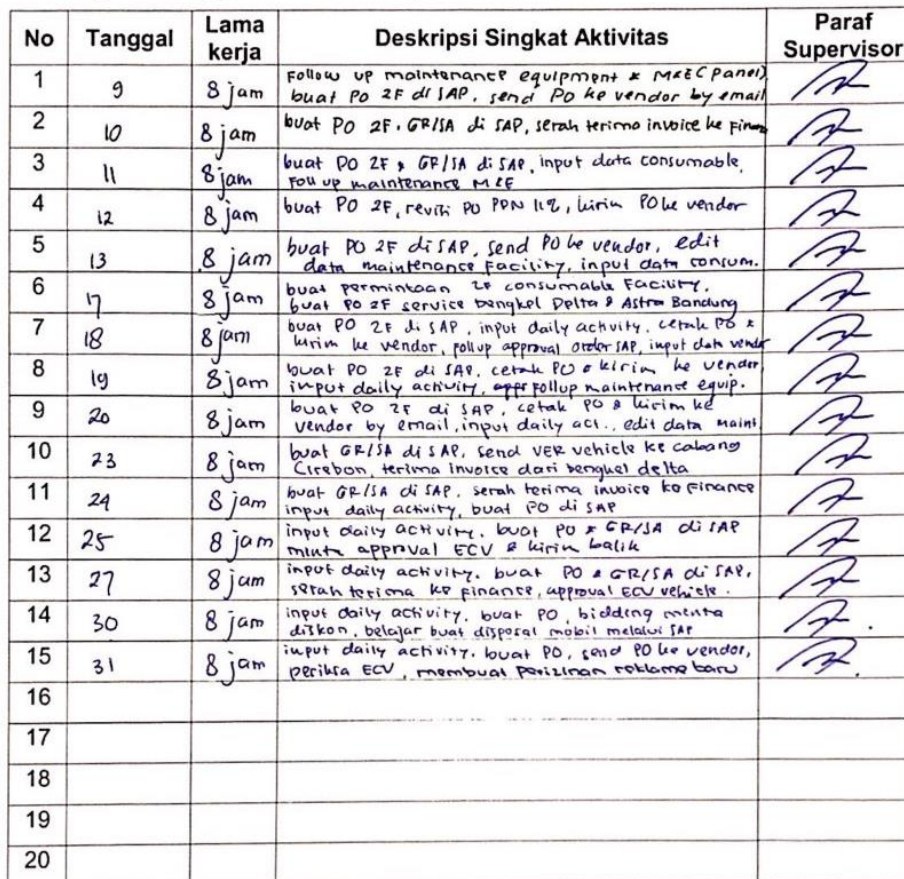 No Tanggal Lama kerja Deskripsi Singkat Aktivitas Paraf Supervisor
1 9 8 jam Follow up maintenance equipment & M&E (Panel)
buat PO 2F di SAP, send PO ke vendor by email
2 10 8 jam buat PO 2F, GR/SA di SAP, serah terima invoice ke Finan
3 11 8 jam buat PO 2F & GR/SA di SAP, input data consumable,
Foll up maintenance M&E
4 12 8 jam buat PO 2F, revisi PO PPN 11%, kirim PO ke vendor
5 13 8 jam buat PO 2F di SAP, send PO ke vendor, edit
data maintenance Facility, input data consum.
6 17 8 jam buat permintaan 2F consumable Facility,
buat PO 2F service bengkel Delta & Astra Bandung
7 18 8 jam buat PO 2F di SAP, input daily activity, cetak PO &
kirim ke vendor, follup approval order SAP, input data vendor
8 19 8 jam buat PO 2F di SAP, cetak PO & kirim ke vendor,
input daily activity, follup maintenance equip.
9 20 8 jam buat PO 2F di SAP, cetak PO & kirim ke
vendor by email, input daily act., edit data maint.
10 23 8 jam buat GR/SA di SAP, send VER vehicle ke cabang
Cirebon, terima invoice dari bengkel delta
11 24 8 jam buat GR/SA di SAP, serah terima invoice ke Finance
input daily activity, buat PO di SAP
12 25 8 jam input daily activity, buat PO & GR/SA di SAP
minta approval ECV & kirim balik
13 27 8 jam input daily activity, buat PO & GR/SA di SAP,
serah terima ke finance, approval ECV vehicle.
14 30 8 jam input daily activity, buat PO, bidding minta
diskon, belajar buat disposal mobil melalui SAP
15 31 8 jam input daily activity, buat PO, send PO ke vendor,
periksa ECV, membuat perizinan reklame baru
16
17
18
19
20